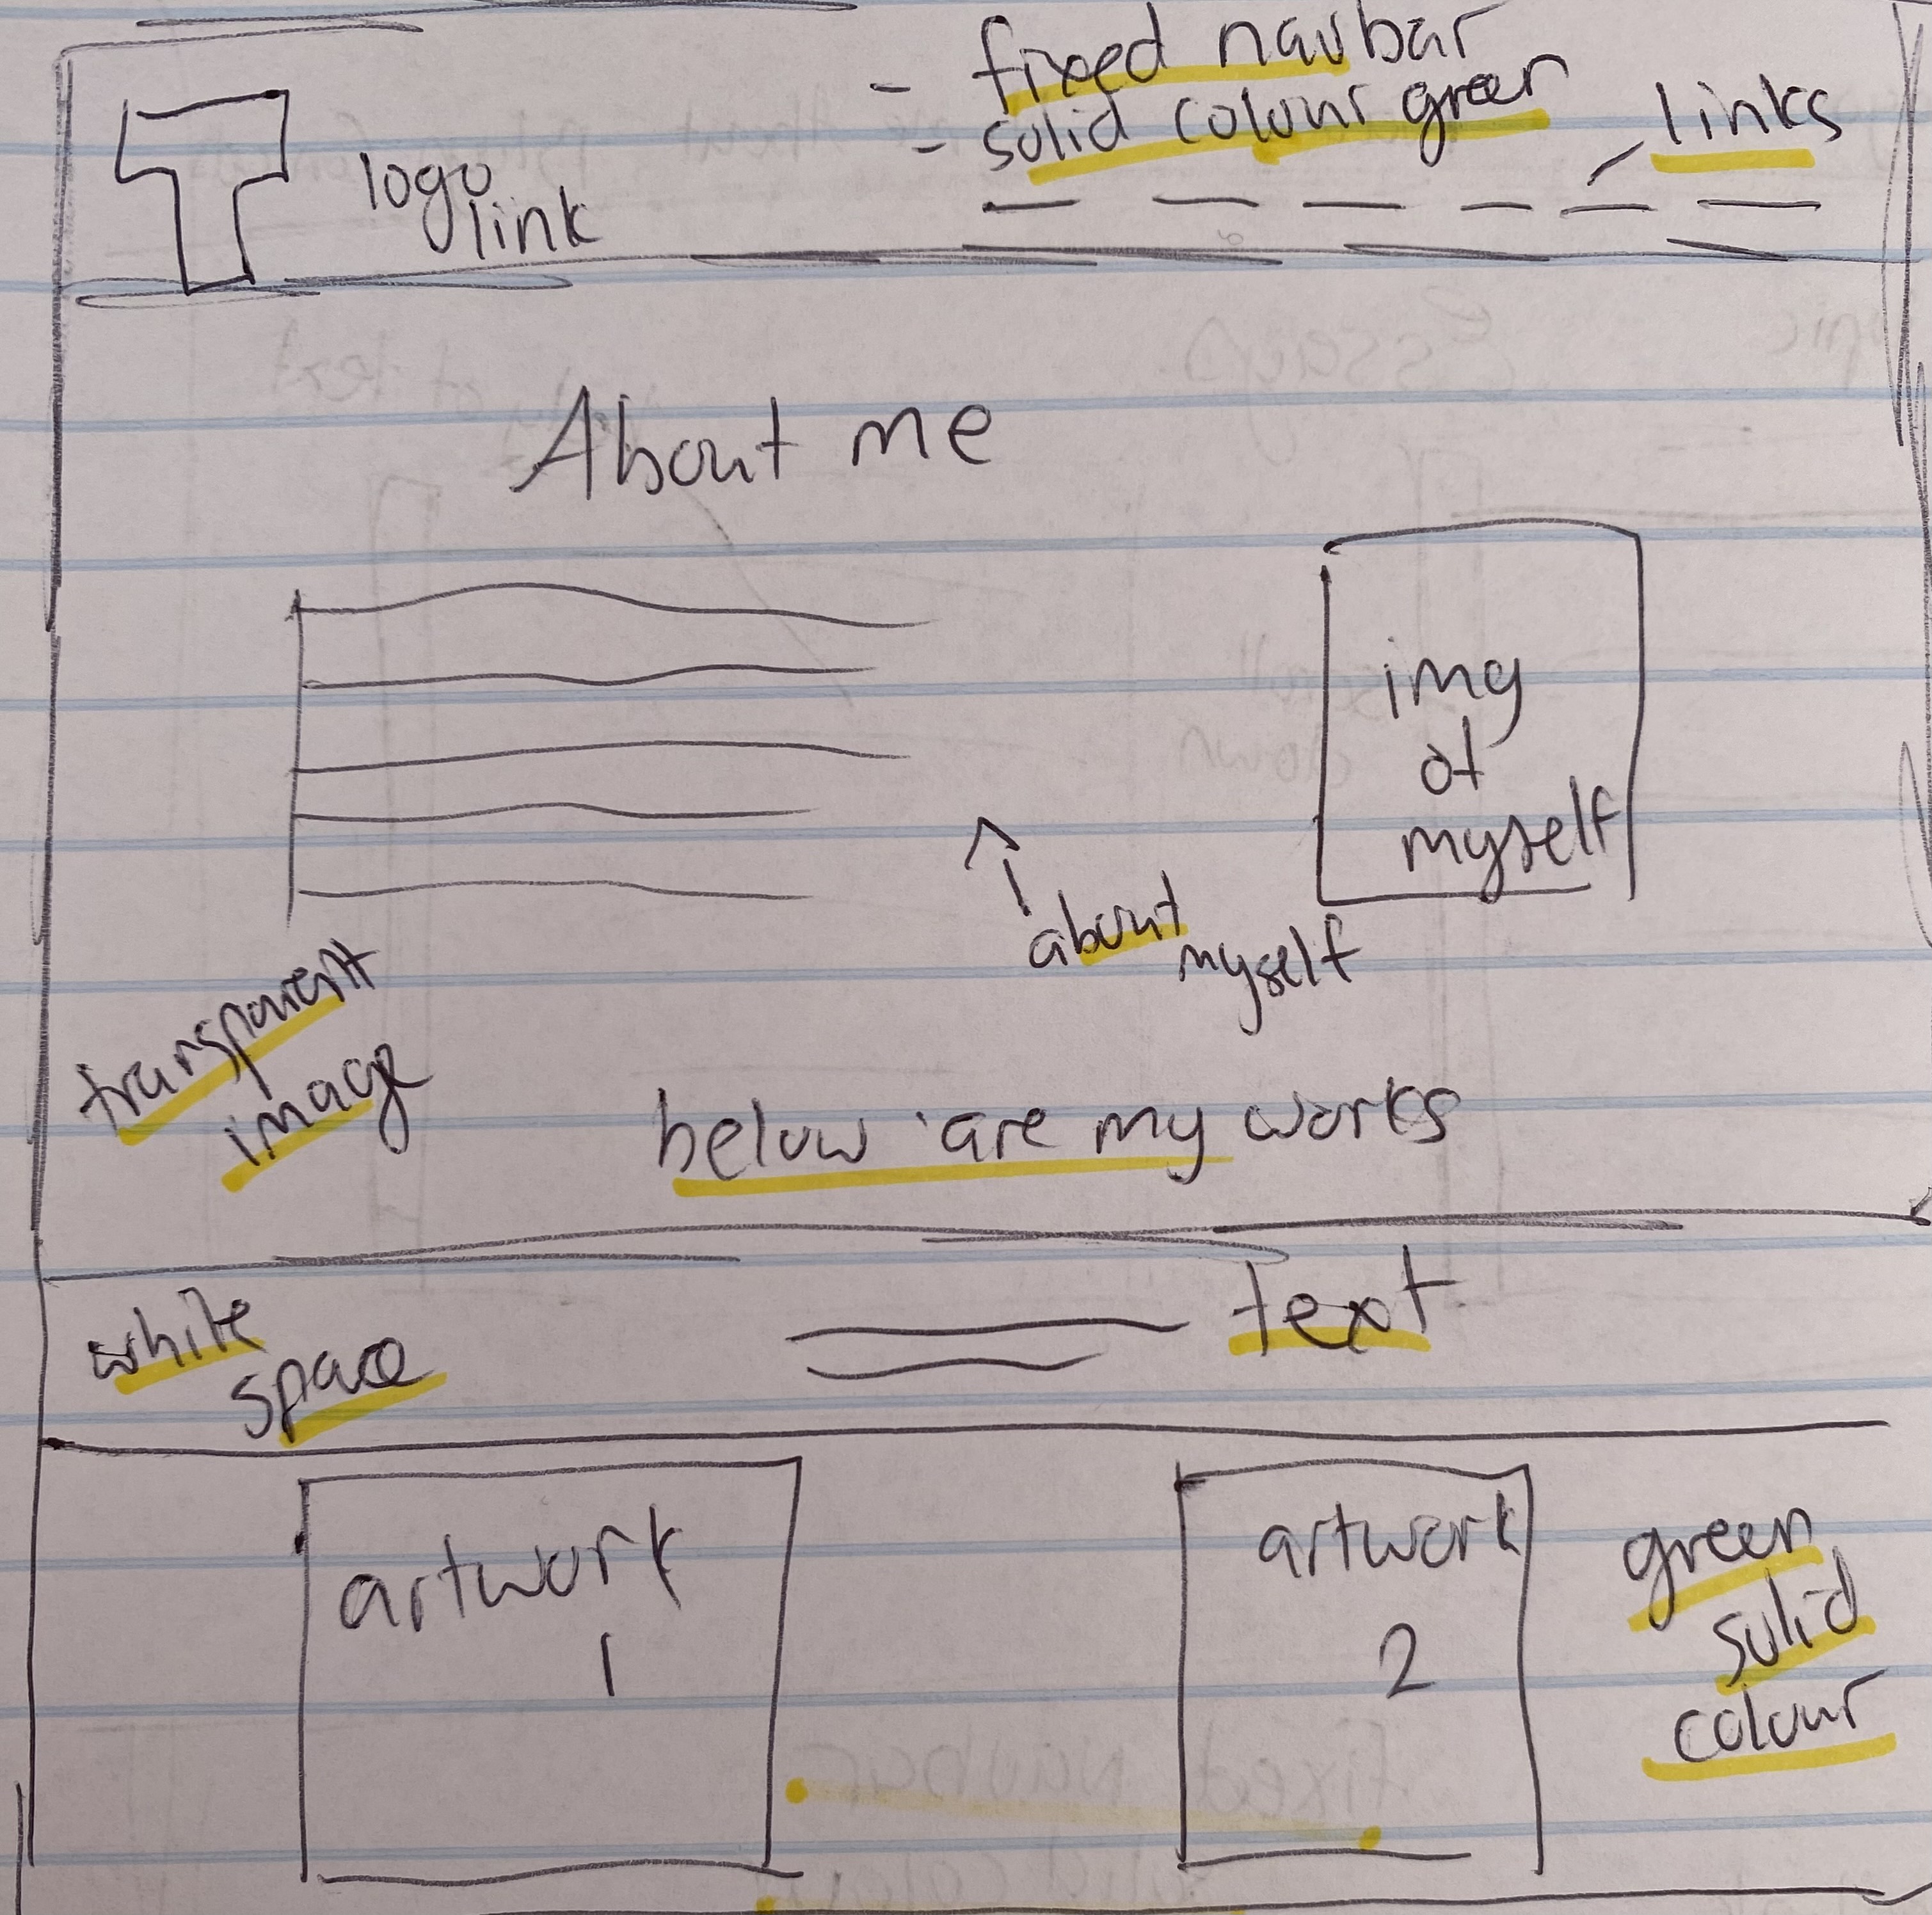 - fixed navbar
- solid colour green
links
logo
link
About me
img
of
myself
about
myself
transparent
image
below are my works
text
white
space
artwork
1
artwork
2
green
solid
colour